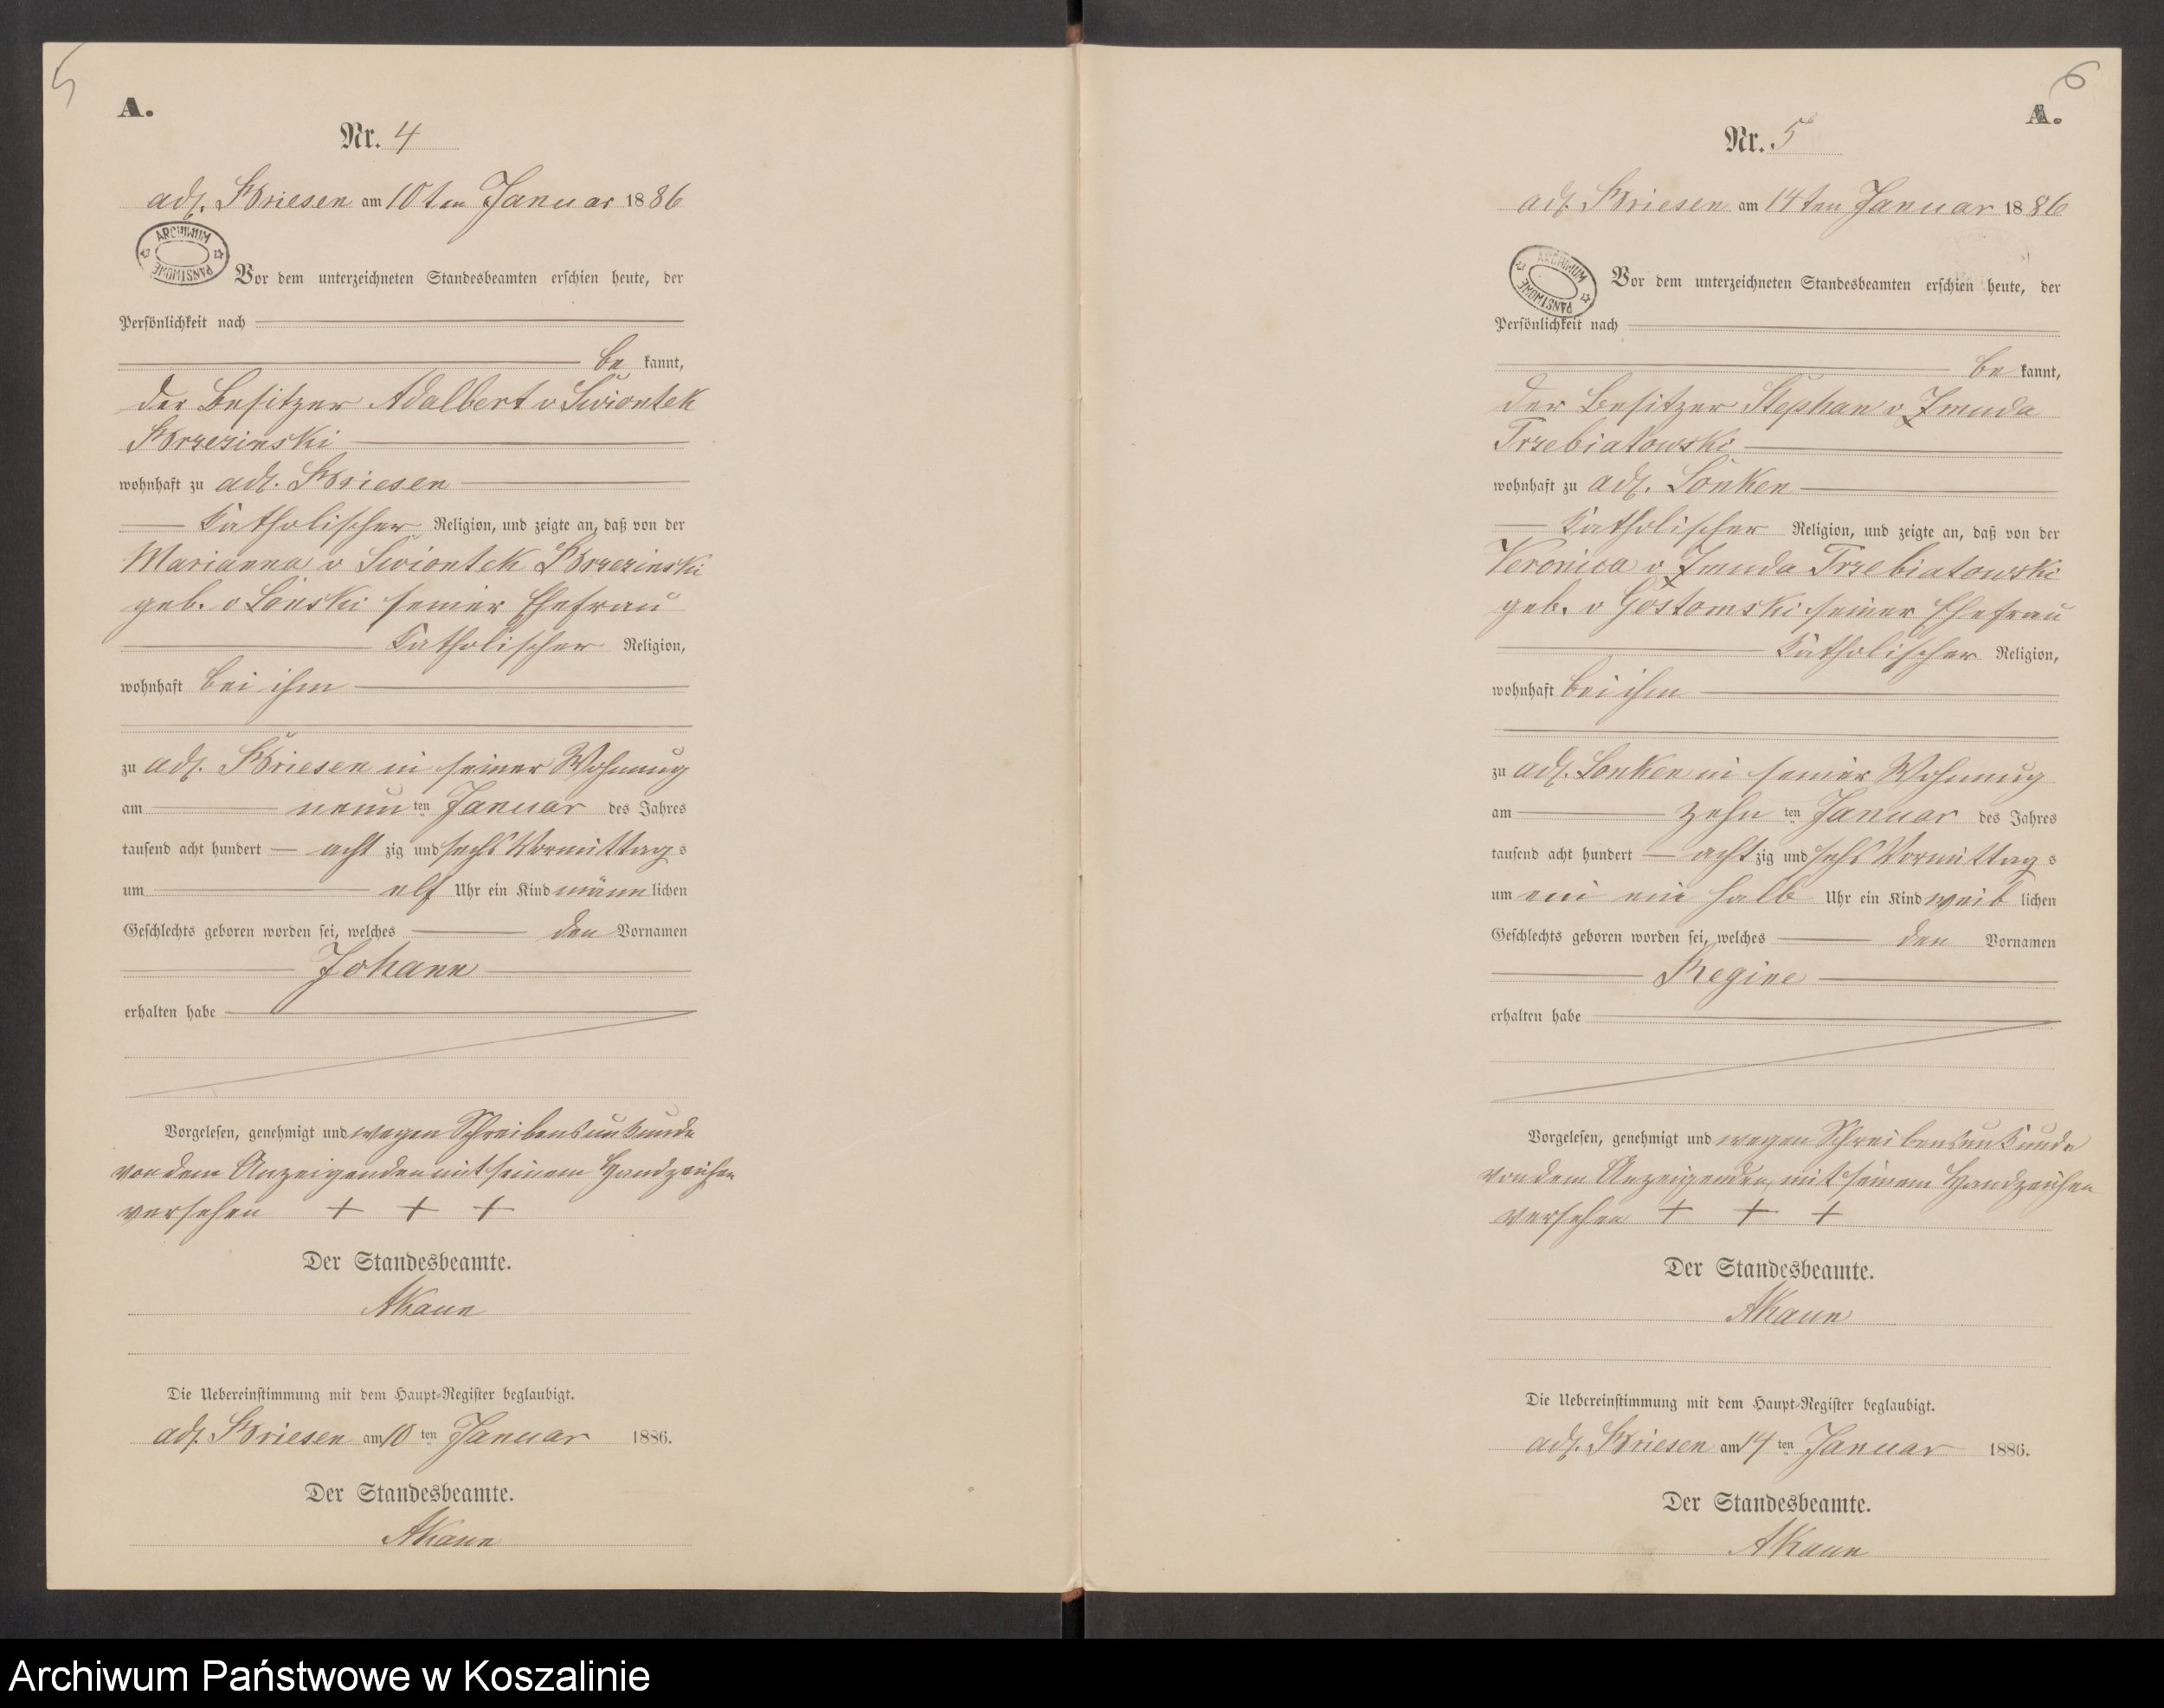 5
A.
Nr. 4
adl. Briesen am 10ten Januar 1886
ARCHIWUM PAŃSTWOWE
Vor dem unterzeichneten Standesbeamten erschien heute, der
Persönlichkeit nach
be kannt,
der Besitzer Adalbert v Swiontek
Brzezinski
wohnhaft zu adl. Briesen
Katholischer Religion, und zeigte an, daß von der
Marianna v Swiontek Brzezinski
geb. v Lonski seiner Ehefrau
Katholischer Religion,
wohnhaft bei ihm
zu adl. Briesen in seiner Wohnung
am neun ten Januar des Jahres
tausend acht hundert acht zig und sechs Vormittags
um elf Uhr ein Kind männ lichen
Geschlechts geboren worden sei, welches den Vornamen
Johann
erhalten habe
Vorgelesen, genehmigt und wegen Schreibensunkunde
von dem Anzeigenden mit seinem Handzeichen
versehen + + +
Der Standesbeamte.
AKaun
Die Uebereinstimmung mit dem Haupt-Register beglaubigt.
adl. Briesen am 10 ten Januar 1886.
Der Standesbeamte.
AKaun
6
A.
Nr. 5
adl. Briesen am 14ten Januar 1886
ARCHIWUM PAŃSTWOWE
Vor dem unterzeichneten Standesbeamten erschien heute, der
Persönlichkeit nach
be kannt,
der Besitzer Stephan v Zmuda
Trzebiatowski
wohnhaft zu adl. Lonken
Katholischer Religion, und zeigte an, daß von der
Veronica v Zmuda Trzebiatowski
geb. v Gostomski seiner Ehefrau
Katholischer Religion,
wohnhaft bei ihm
zu adl. Lonken in seiner Wohnung
am zehn ten Januar des Jahres
tausend acht hundert acht zig und sechs Vormittags
um ein ein halb Uhr ein Kind weib lichen
Geschlechts geboren worden sei, welches den Vornamen
Regine
erhalten habe
Vorgelesen, genehmigt und wegen Schreibensunkunde
von dem Anzeigenden mit seinem Handzeichen
versehen + + +
Der Standesbeamte.
AKaun
Die Uebereinstimmung mit dem Haupt-Register beglaubigt.
adl. Briesen am 14 ten Januar 1886.
Der Standesbeamte.
AKaun
Archiwum Państwowe w Koszalinie